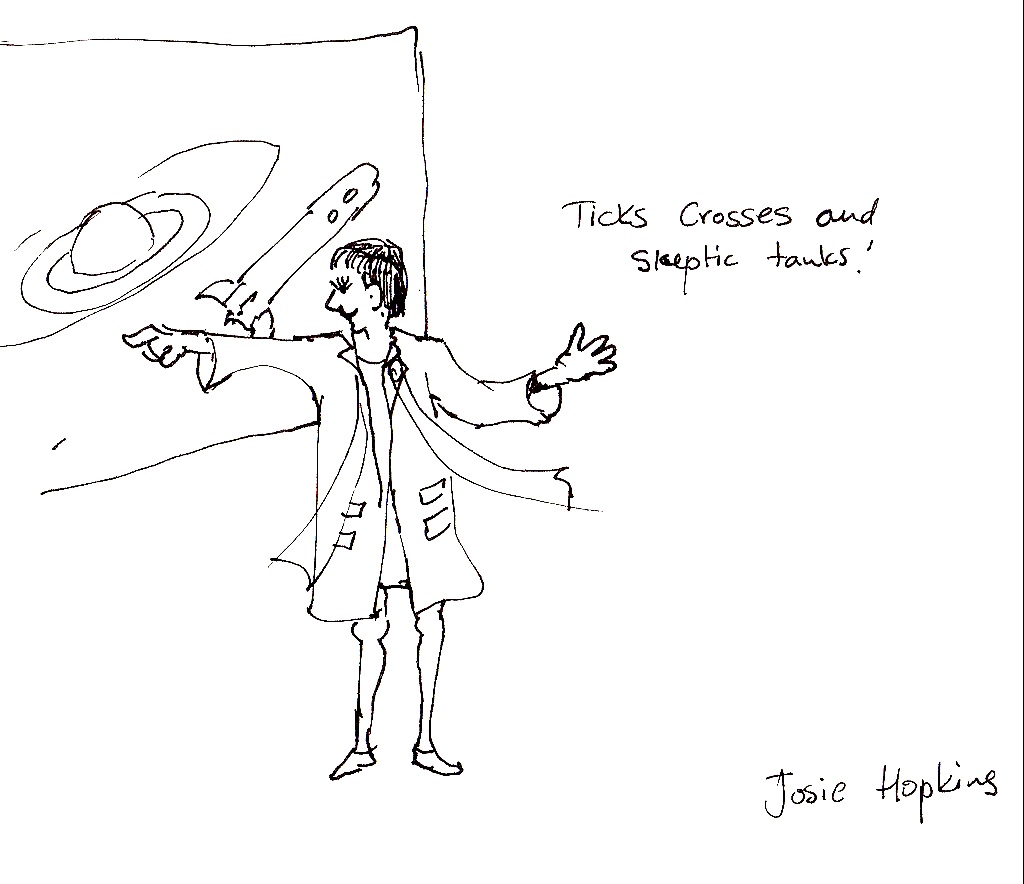 Ticks Crosses and
Skeptic tanks!
Josie Hopkins